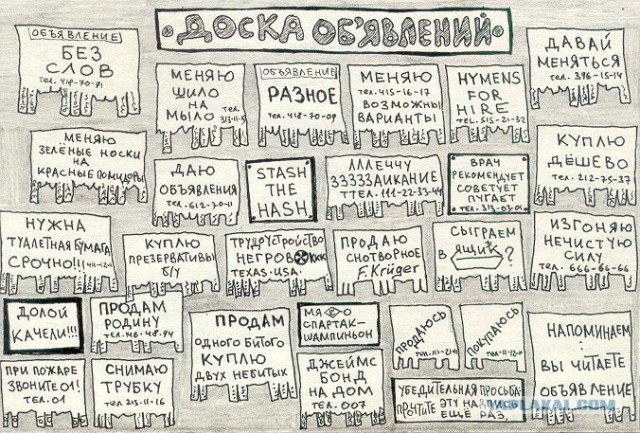 ДОСКА ОБЪЯВЛЕНИЙ
ОБЪЯВЛЕНИЕ
БЕЗ
СЛОВ
ТЕЛ.
МЕНЯЮ
ШИЛО
НА
МЫЛО
ТЕЛ.
ОБЪЯВЛЕНИЕ
РАЗНОЕ
ТЕЛ. 418-70-09
МЕНЯЮ
ТЕЛ. 415-16-17
ВОЗМОЖНЫ
ВАРИАНТЫ
HYMENS
FOR
HIRE
TEL. 515-21-52
ДАВАЙ
МЕНЯТЬСЯ
ТЕЛ. 396-15-14
МЕНЯЮ
ЗЕЛЁНЫЕ НОСКИ
НА
КРАСНЫЕ ПОМИДОРЫ
ДАЮ
ОБЪЯВЛЕНИЯ
ТЕЛ. 612-70-11
STASH
THE
HASH
ЛЛЛЕЧЧУ
ЗЗЗЗЗАИКАНИЕ
ТТЕЛ. 111-22-33-44
ВРАЧ
РЕКОМЕНДУЕТ
СОВЕТУЕТ
ПУГАЕТ
ТЕЛ. 313-03-01
КУПЛЮ
ДЁШЕВО
ТЕЛ. 212-75-37
НУЖНА
ТУАЛЕТНАЯ БУМАГА
СРОЧНО!!!
КУПЛЮ
ПРЕЗЕРВАТИВЫ
Б/У
ТРУДУСТРОЙСТВО
НЕГРОВ KKK
TEXAS-USA.
ПРОДАЮ
СНОТВОРНОЕ
F. Krüger
СЫГРАЕМ
В ЯЩИК?
ИЗГОНЯЮ
НЕЧИСТУЮ
СИЛУ
ТЕЛ. 666-66-66
ДОЛОЙ
КАЧЕЛИ!!!
ПРОДАМ
РОДИНУ
ТЕЛ.
ПРОДАМ
ОДНОГО БИТОГО
КУПЛЮ
ДВУХ НЕБИТЫХ
МЯСО
СПАРТАК-
ШАМПИНЬОН
ПРОДАЮСЬ
ПОКУПАЮСЬ
НАПОМИНАЕМ:
ВЫ ЧИТАЕТЕ
ОБЪЯВЛЕНИЕ
ПРИ ПОЖАРЕ
ЗВОНИТЕ 01!
ТЕЛ. 01
СНИМАЮ
ТРУБКУ
ТЕЛ 215-11-16
ДЖЕЙМС
БОНД
НА ДОМ
ТЕЛ. 007
УБЕДИТЕЛЬНАЯ ПРОСЬБА:
ПРОЧТИТЕ ЭТУ
ЕЩЁ РАЗ.